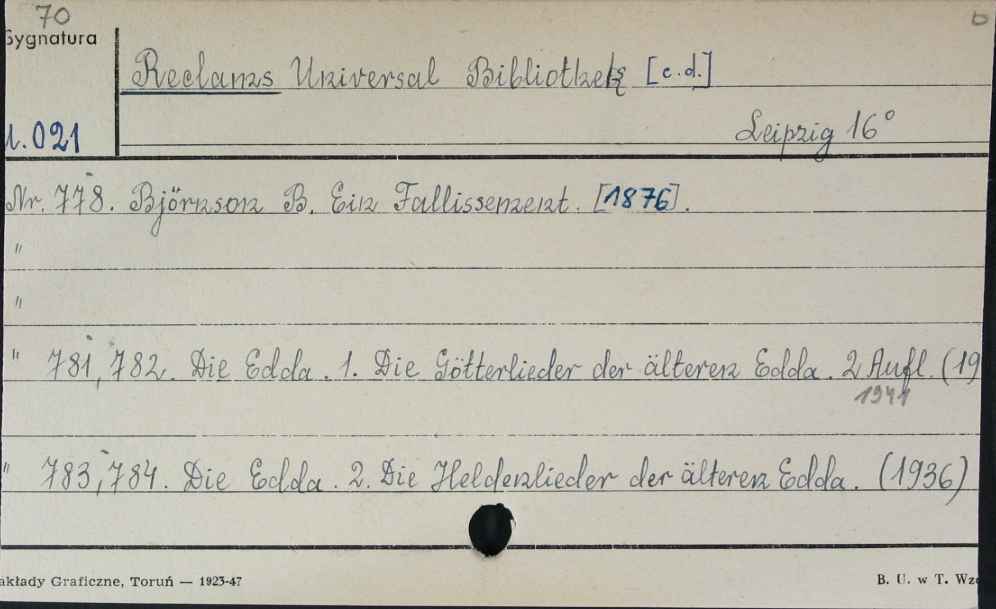 70
Sygnatura
Reclams Universal Bibliothek [c.d.]
1.021
Leipzig 16°
Nr. 778. Björnson B. Ein Fallissement. [1876].
"
"
" 781, 782. Die Edda. 1. Die Götterlieder der älteren Edda. 2 Aufl. (19
1941
" 783, 784. Die Edda. 2. Die Heldenlieder der älteren Edda. (1936)
akłady Graficzne, Toruń — 1923-47
B. U. w T. Wz